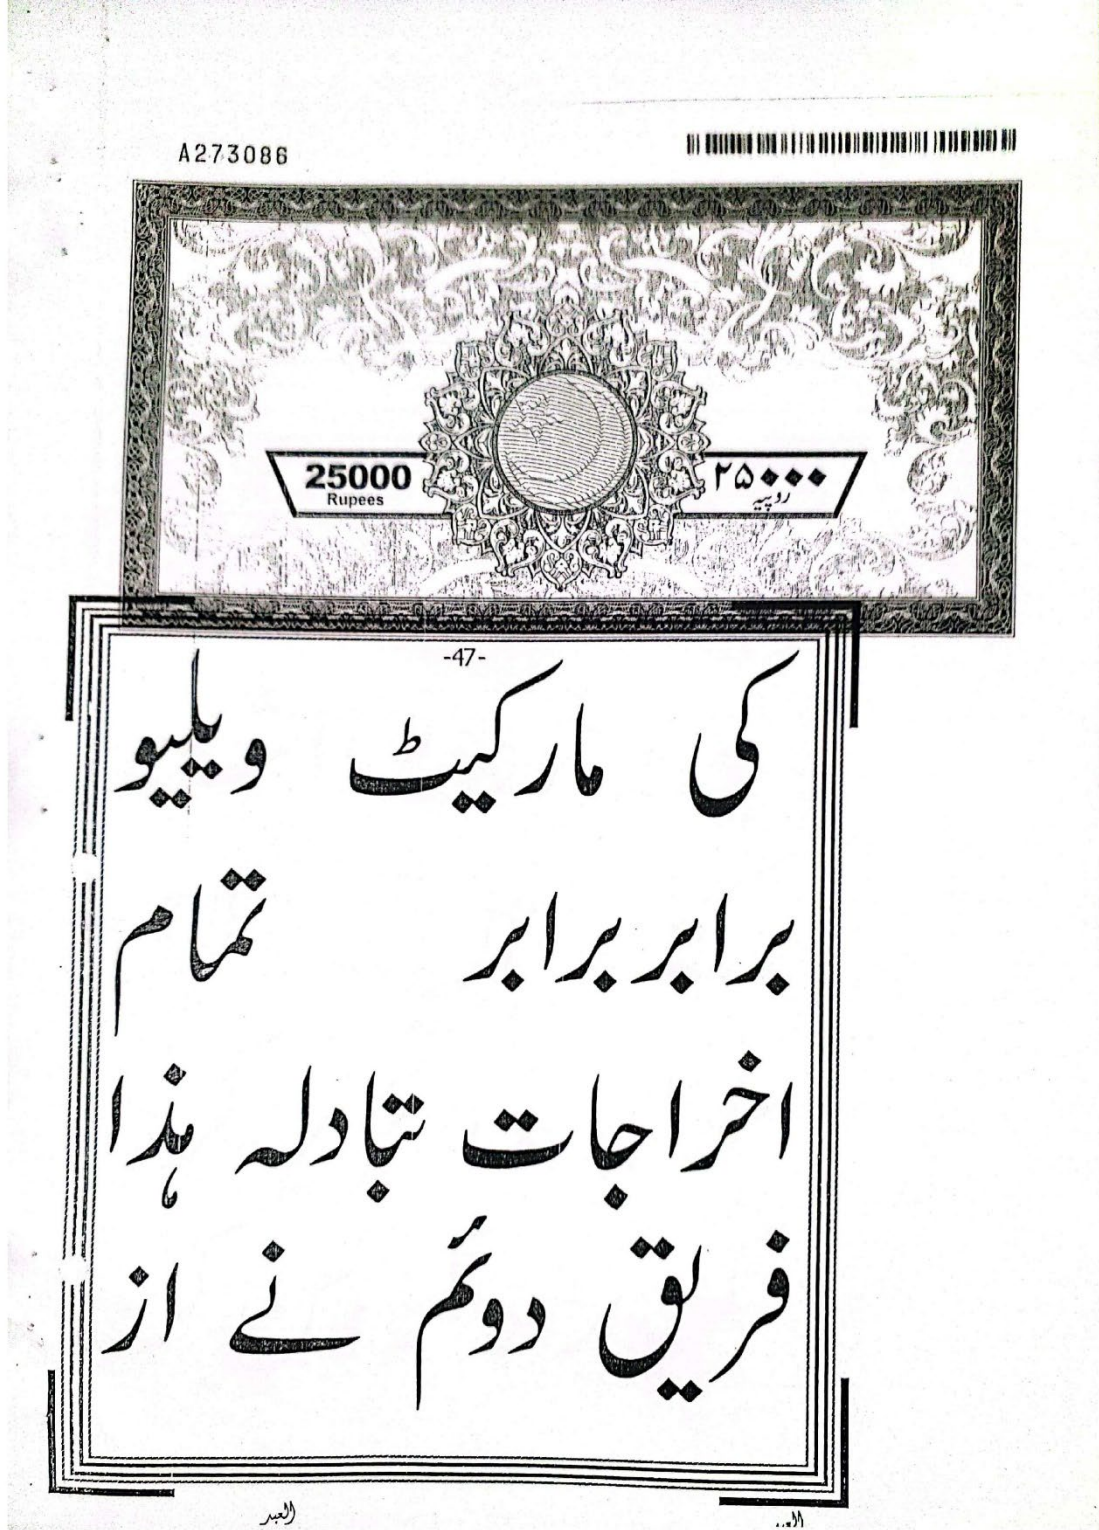 A273086
25000
Rupees
۲۵۰۰۰
روپیہ
-47-
کی مارکیٹ ویلیو
برابر برابر تمام
اخراجات تبادلہ ہٰذا
فریق دوئم نے از
العبد
العبد